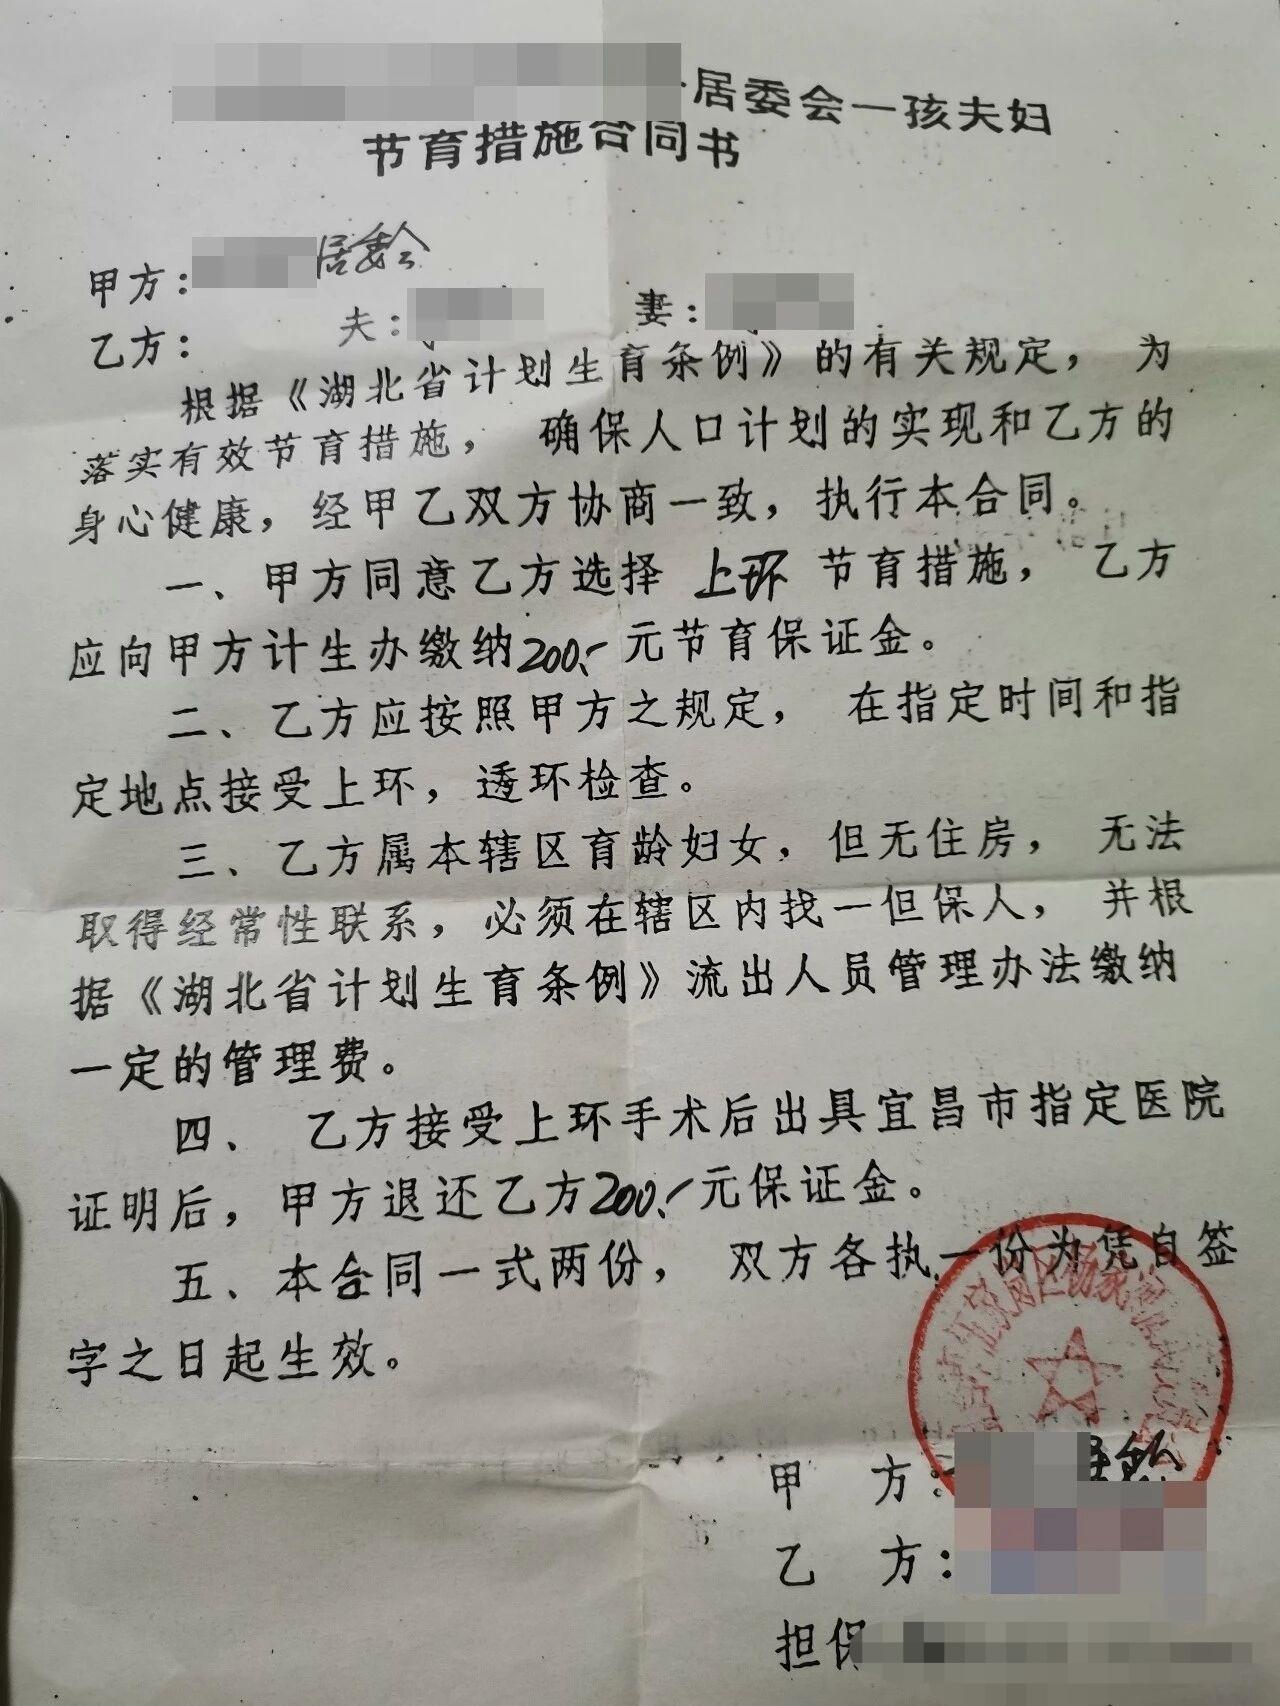 居委会一孩夫妇
节育措施合同书
甲方: 居委会
乙方: 夫: 妻:
根据《湖北省计划生育条例》的有关规定， 为
落实有效节育措施， 确保人口计划的实现和乙方的
身心健康，经甲乙双方协商一致，执行本合同。
一、甲方同意乙方选择 上环 节育措施， 乙方
应向甲方计生办缴纳200.-元节育保证金。
二、乙方应按照甲方之规定， 在指定时间和指
定地点接受上环，透环检查。
三、乙方属本辖区育龄妇女，但无住房， 无法
取得经常性联系，必须在辖区内找一但保人， 并根
据《湖北省计划生育条例》流出人员管理办法缴纳
一定的管理费。
四、 乙方接受上环手术后出具宜昌市指定医院
证明后，甲方退还乙方200.-元保证金。
五、本合同一式两份， 双方各执一份为凭自签
字之日起生效。
甲 方:
乙 方:
担保